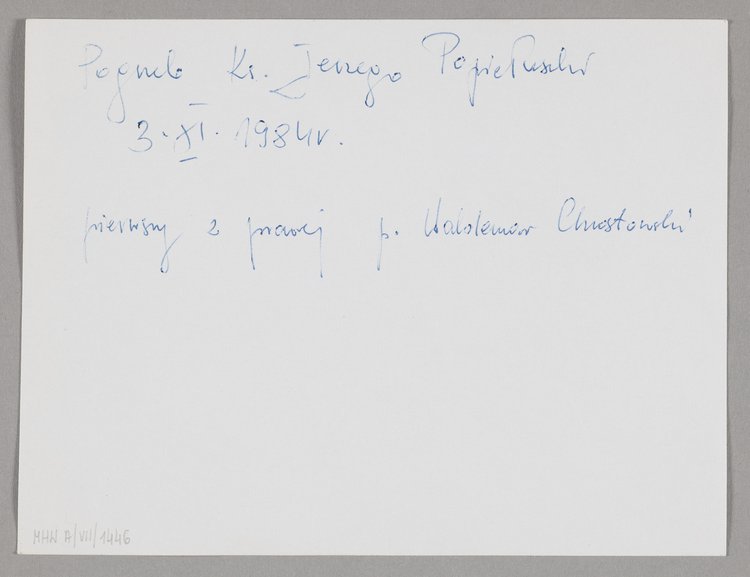 Pogrzeb Ks. Jerzego Popiełuszki
3.XI.1984r.
pierwszy z prawej p. Waldemar Chrostowski
MHW A/VII/1446